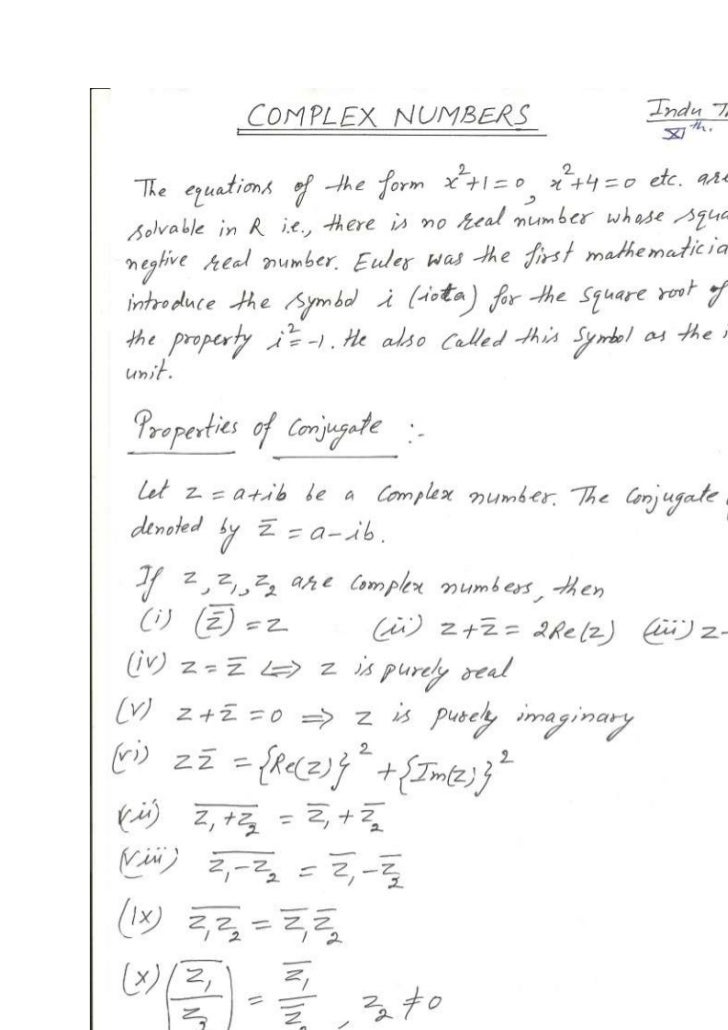 COMPLEX NUMBERS
Indu
XIth.
The equations of the form x²+1=0, x²+4=0 etc. are
solvable in R i.e., there is no real number whose squa
negtive real number. Euler was the first mathematicia
introduce the symbol i (iota) for the square root of
the property i²=-1. He also called this symbol as the i
unit.
Properties of Conjugate :-
Let z = a+ib be a complex number. The Conjugate
denoted by z̅ = a-ib.
If z, z₁, z₂ are complex numbers, then
(i) (z̅)̅ = z (ii) z+z̅ = 2Re(z) (iii) z-
(iv) z = z̅ ⇔ z is purely real
(v) z+z̅ = 0 ⇒ z is purely imaginary
(vi) zz̅ = {Re(z)}² + {Im(z)}²
(vii) \overline{z₁+z₂} = z̅₁+z̅₂
(viii) \overline{z₁-z₂} = z̅₁-z̅₂
(ix) \overline{z₁z₂} = z̅₁z̅₂
(x) \overline{(z₁/z₂)} = z̅₁/z̅₂, z₂≠0